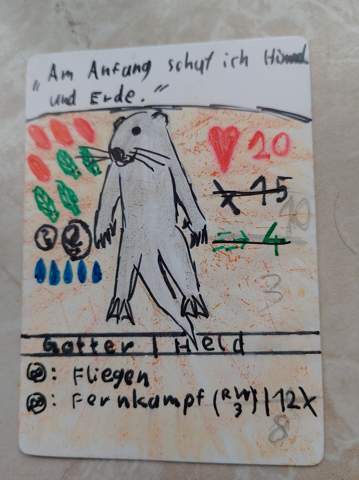 „Am Anfang schuf ich Himmel
und Erde.“
20
15
10
4
3
2 2
Götter | Held
: Fliegen
: Fernkampf (RW 3) | 12X
8